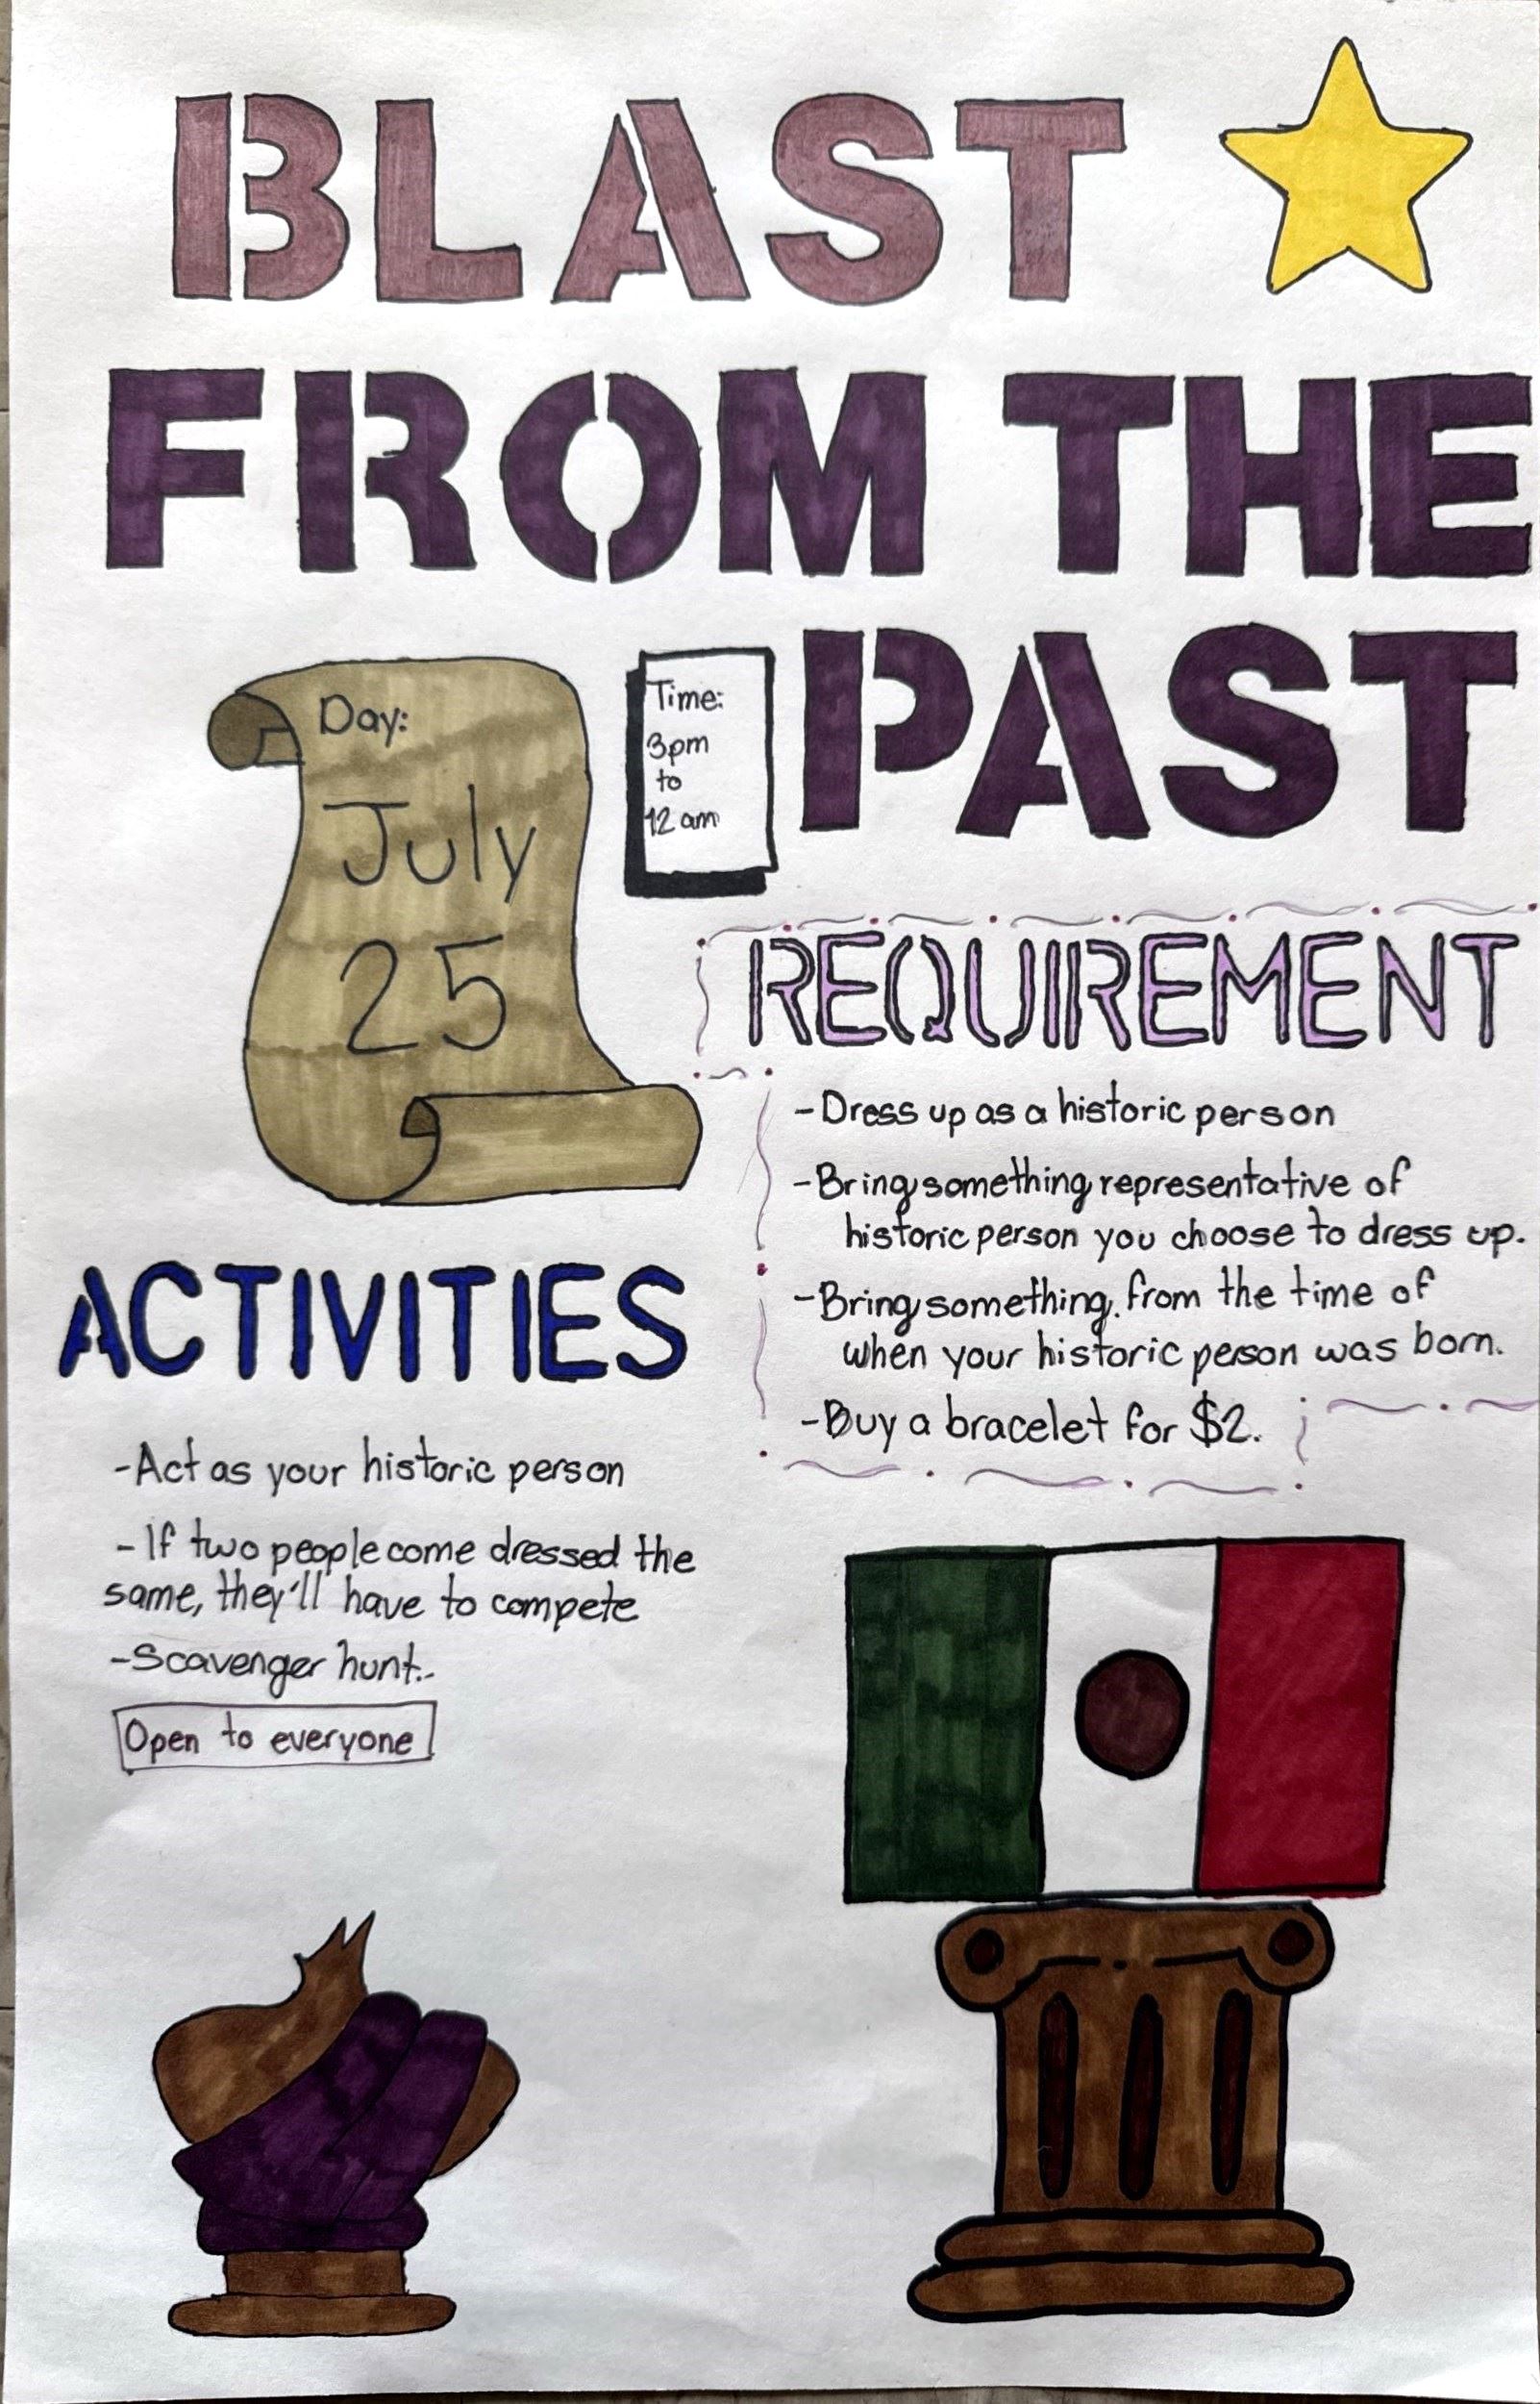 BLAST
FROM THE
PAST
Day:
July
25
Time:
3pm
to
12 am
REQUIREMENT
-Dress up as a historic person
-Bring something representative of
historic person you choose to dress up.
-Bring something from the time of
when your historic person was born.
-Buy a bracelet for $2.
ACTIVITIES
-Act as your historic person
-If two people come dressed the
same, they'll have to compete
-Scavenger hunt..
Open to everyone